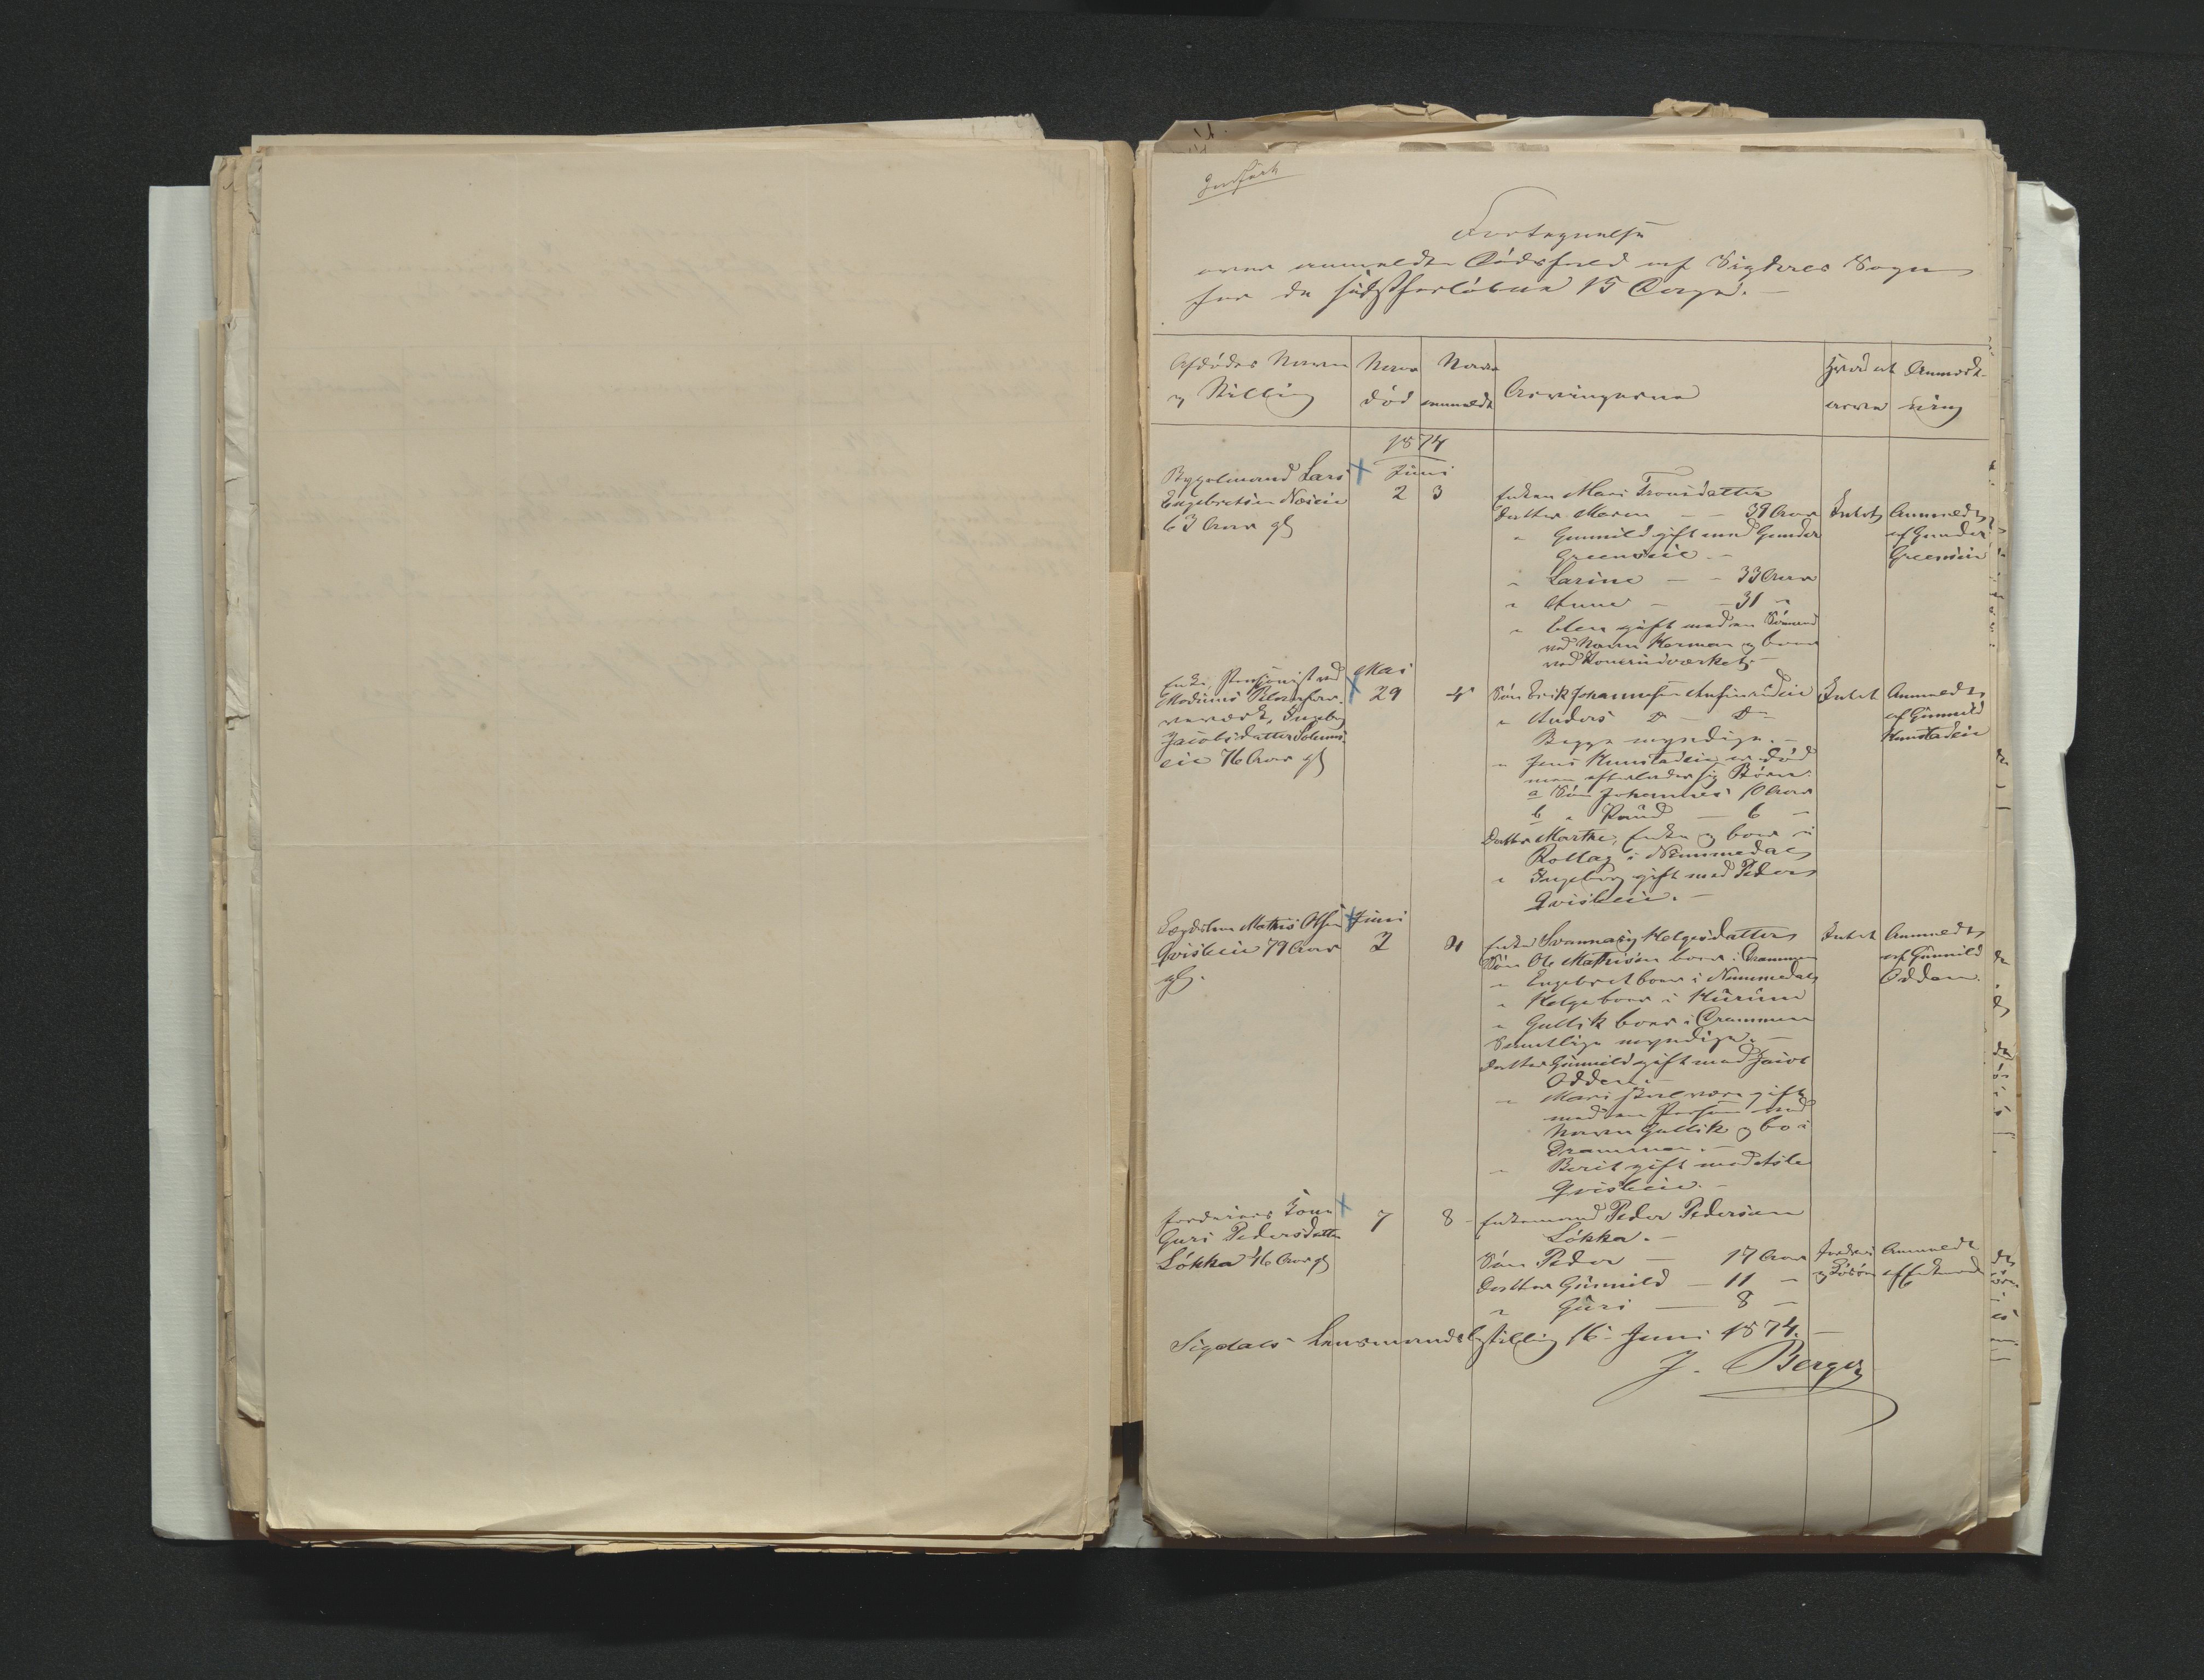 Indført
Fortegnelse
over anmeldte Dødsfald af Sigdals Sogn
for de sidstforløbne 15 Dage.
Afdødes Navn
og Stilling
Naar
død
Naar
anmeldt
Arvingerne
Hvad at
arve
Anmærk-
ning
1874
Juni
Bygselmand Lars
Engebretsen Næseie
63 Aar gl
2 3
Enken Mari Tronsdatter
Datter Maren - - 39 Aar
" Gunnild gift med Gunder
Greenseie -
" Larine - - 33 Aar
" Anne - - 31 "
" Elen gift med en Svensk
ved Navn Herman og boer
ved Konerudværket -
Intet
Anmeldt
af Gunder
Greenseie
Enke, Pensjonist ved
Modums Blaafar-
veværk, Ingeborg
Jacobsdatter Solums-
eie 76 Aar gl
Mai
29 4
Søn Erik Johannesen
" Anders D - D -
Begge myndige. -
" Jens Kunstadeie er død
men efterlader sig Børn:
a Søn Johannes 10 Aar
b " Knud - 6 -
Datter Marthe, Enke og boer i
Rollag i Nummedal
" Ingeborg gift med Peder
Qvisleeie. -
Intet
Anmeldt
af Gunnild
Kunstadeie
Lægdslem Mathis Olsen
Qvisleeie 79 Aar
gl.
Juni
2 4
Enke Svannaug Helgesdatter
Søn Ole Mathisen boer i Drammen
" Engebret boer i Nummedal
" Helge boer i Hurum
" Gullik boer i Drammen
Samtlige myndige. -
Datter Gunnild gift med Jacob
Odden. -
" Mari skal være gift
med en Person ved
Navn Gullik og bo i
Drammen. -
" Berit gift med Atle
Qvisleeie. -
Intet
Anmeldt
af Gunnild
Odden.
Jordeiers Kone
Guri Pedersdatter
Løkka 46 Aar gl
7 8
Enkemand Peder Pedersen
Løkka. -
Søn Peder - 17 Aar
Datter Gunnild - 11 -
" Guri - 8 -
Jordvei
og Løsøre
Anmeldt
af Enkemanden
Sigdals Lensmandsbestilling 16 Juni 1874. -
J. Berger